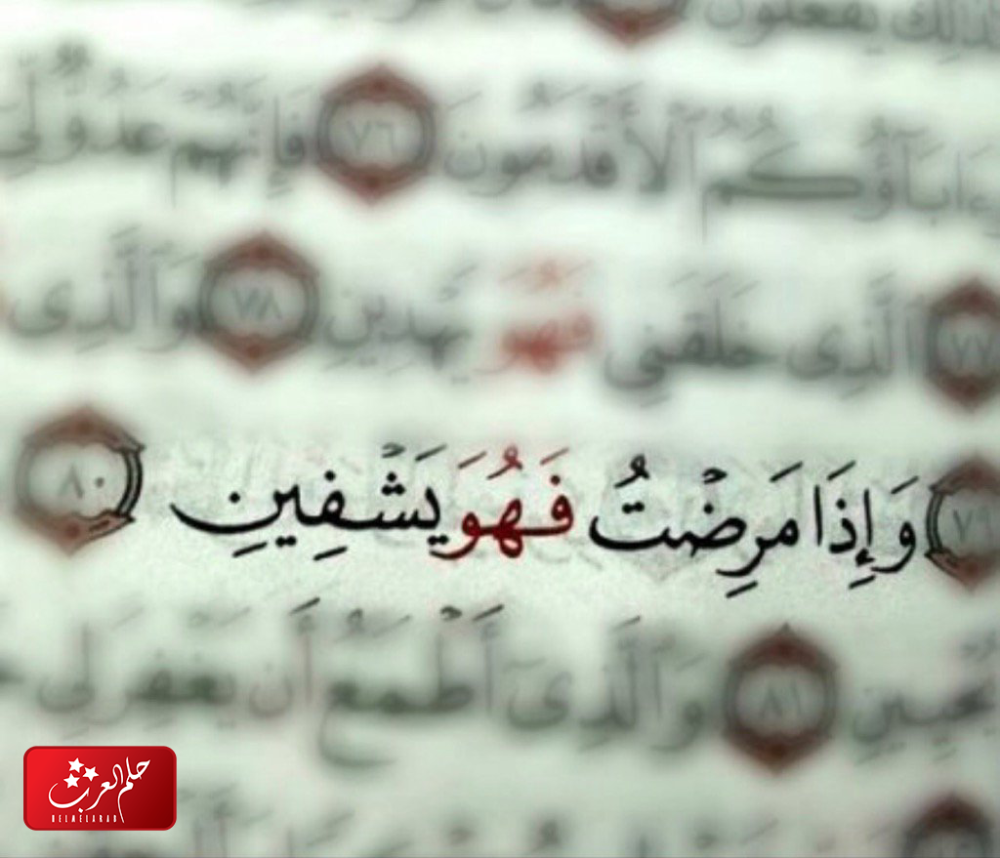 كذلك يفعلون
ءَابَآؤُكُمُ ٱلْأَقْدَمُونَ ٧٦ فَإِنَّهُمْ عَدُوٌّ لِّى
٧٧ ٱلَّذِى خَلَقَنِى فَهُوَ يَهْدِينِ ٧٨ وَٱلَّذِى
وَإِذَا مَرِضْتُ فَهُوَ يَشْفِينِ ٨٠
يُحْيِينِ ٨١ وَٱلَّذِىٓ أَطْمَعُ أَن يَغْفِرَ لِى
حلم العرب
HELMELARAB